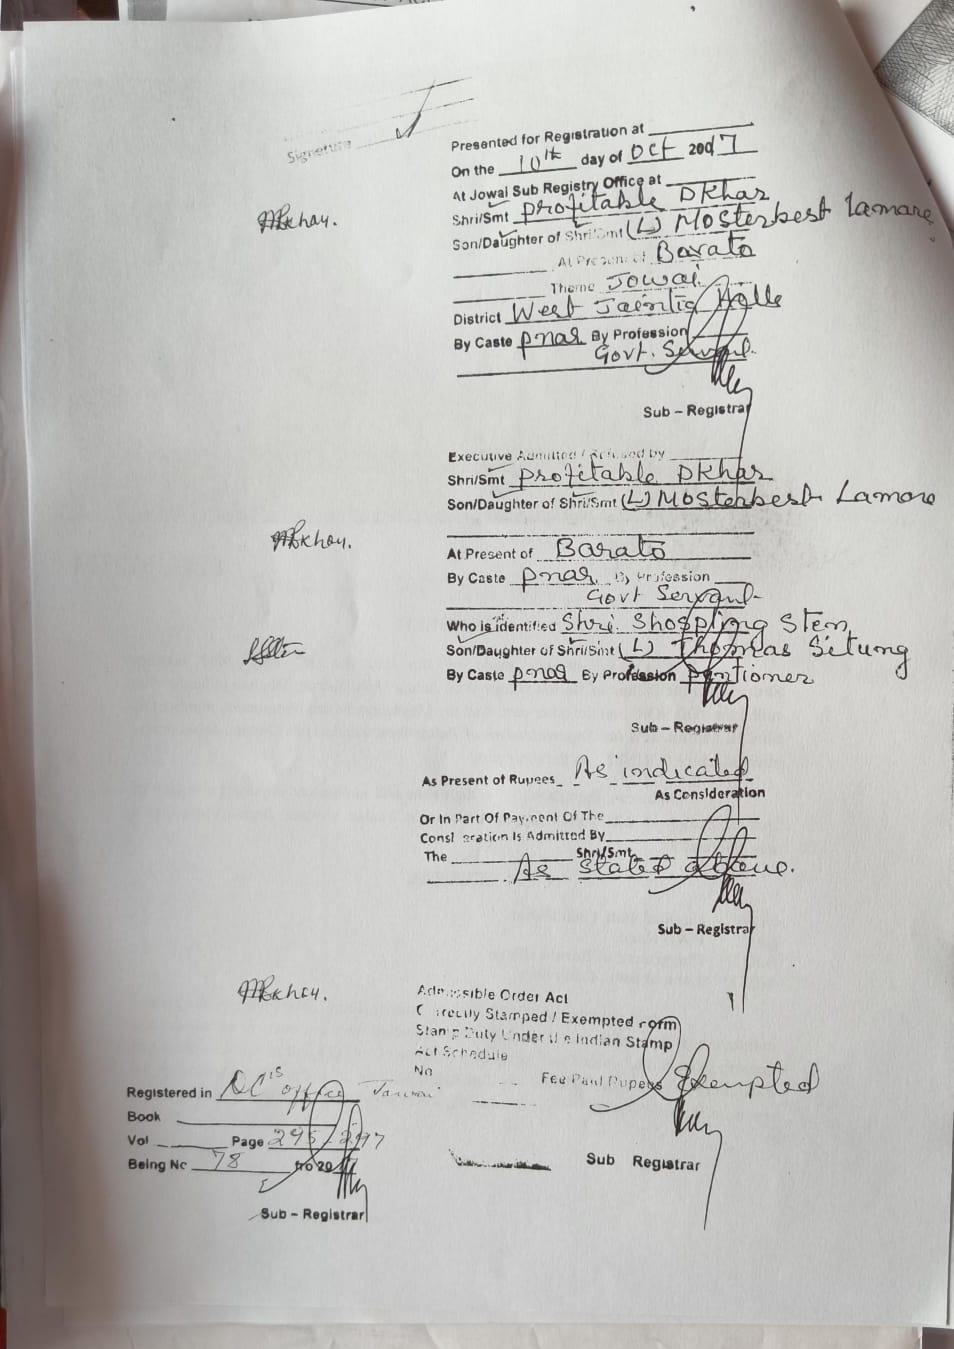 Signature
Presented for Registration at
On the 10th day of Oct 2007
At Jowai Sub Registry Office at
Shri/Smt Profitable Dkhar
Son/Daughter of Shri/Smt (L) Mosterbest Lamare
At Present of Barato
Theme Jowai
District West Jaintia Hills
By Caste Pnar By Profession
Govt. Servant.
Sub – Registrar
Executive Admitted / Refused by
Shri/Smt Profitable Dkhar
Son/Daughter of Shri/Smt (L) Mosterbest Lamare
At Present of Barato
By Caste Pnar By Profession
Govt Servant
Who is identified Shri. Shospling Sten
Son/Daughter of Shri/Smt (L) Thomas Situng
By Caste Pnar By Profession Pentioner
Sub – Registrar
As Present of Rupees As indicated
As Consideration
Or In Part Of Payment Of The
Consideration Is Admitted By
The Shri/Smt
As stated above.
Sub – Registrar
Admissible Order Act
Correctly Stamped / Exempted form
Stamp Duty Under the Indian Stamp
Act Schedule
No Fee Paid Rupees Exempted
Registered in DC's office
Book
Vol Page 295-297
Being No 78 fro 20
Sub Registrar
Sub – Registrar